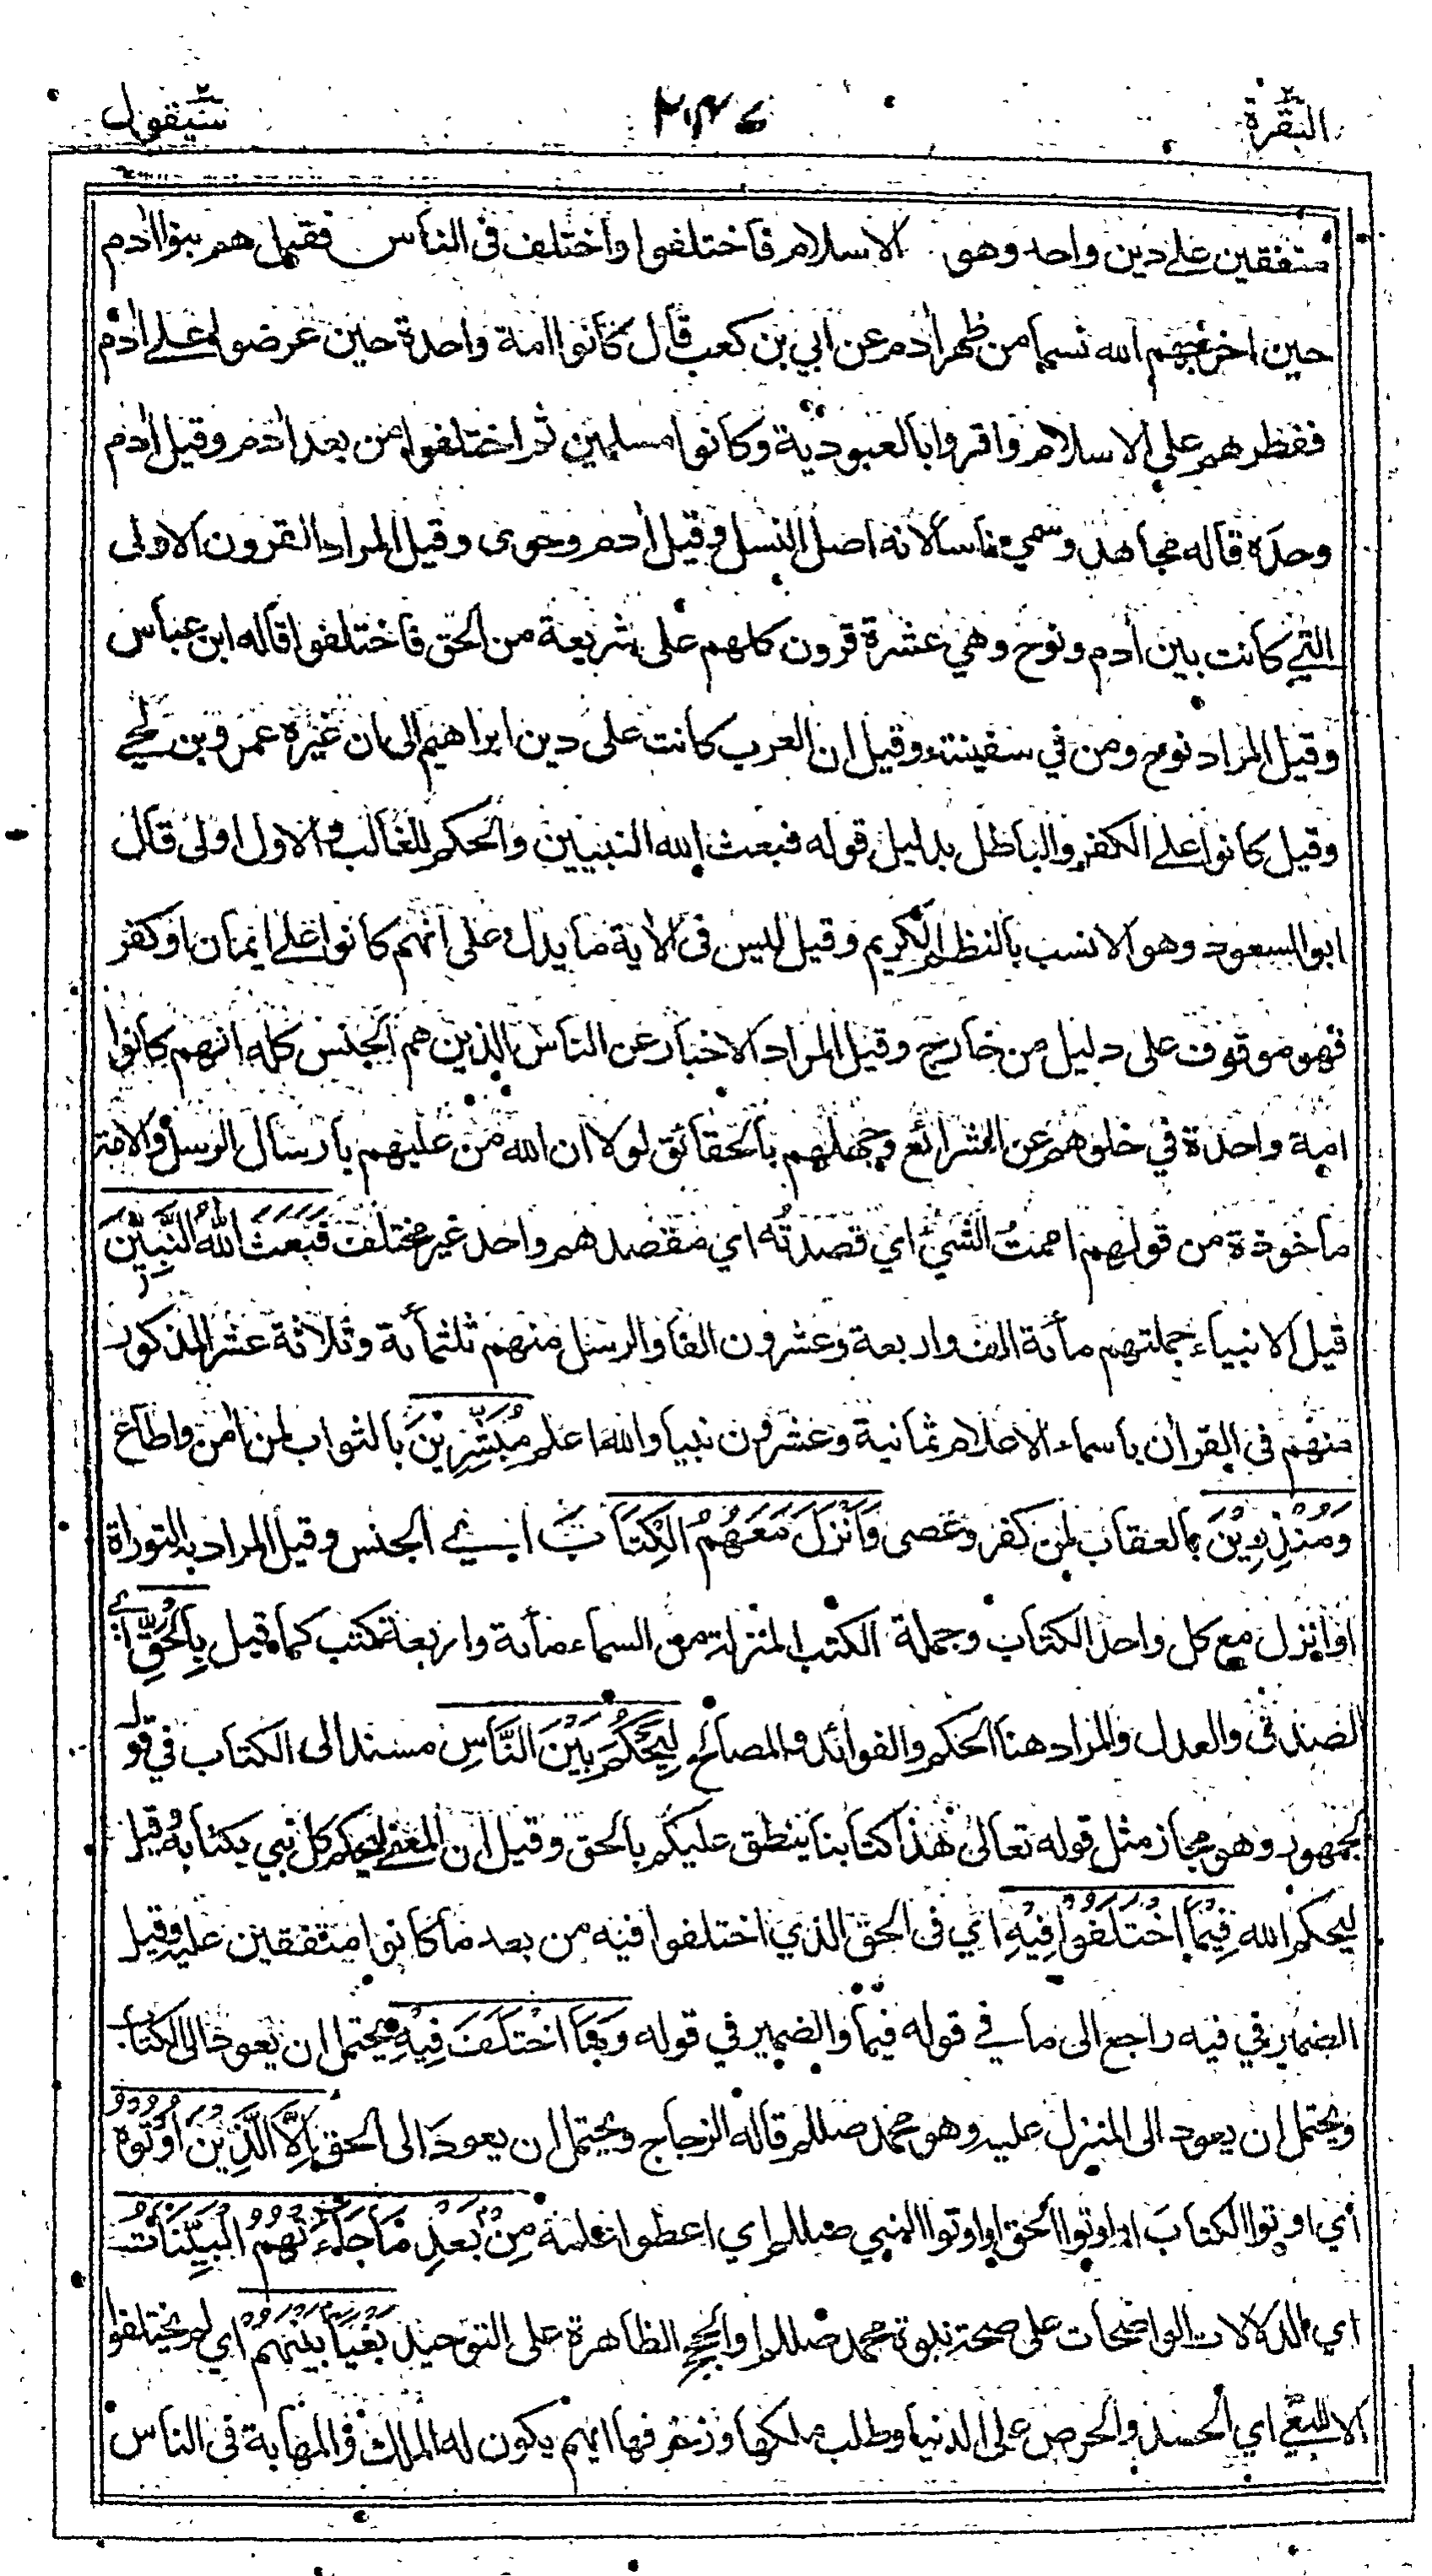 البقرة ٢٤٧ سيقول
متفقين على دين واحد وهو الاسلام فاختلفوا واختلف فى الناس فقيل هم بنو اٰدم
حين اخرجهم الله نسما من ظهر اٰدم عن ابي بن كعب قال كانوا امة واحدة حين عرضوا على اٰدم
ففطرهم على الاسلام واقروا بالعبودية وكانوا مسلمين ثم اختلفوا من بعد اٰدم وقيل اٰدم
وحده قاله مجاهد وسمي ناسا لانه اصل النسل وقيل اٰدم وحوى وقيل المراد القرون الاولى
التي كانت بين اٰدم ونوح وهي عشرة قرون كلهم على شريعة من الحق فاختلفوا قاله ابن عباس
وقيل المراد نوح ومن في سفينته وقيل ان العرب كانت على دين ابراهيم الى ان غيره عمرو بن لحي
وقيل كانوا على الكفر والباطل بدليل قوله فبعث الله النبيين والحكم للغالب والاول اولى قال
ابو السعود وهو الانسب بالنظم الكريم وقيل ليس فى الاٰية ما يدل على انهم كانوا على ايمان او كفر
فهو موقوف على دليل من خارج وقيل المراد الاخبار عن الناس الذين هم الجنس كله انهم كانوا
امة واحدة في خلوهم عن الشرائع وجهلهم بالحقائق لولا ان الله من عليهم بارسال الرسل والامة
ماخوذة من قولهم اممتُ الشيء اي قصدتُه اي مقصدهم واحد غير مختلف فَبَعَثَ اللهُ النَّبِيّٖنَ
قيل الانبياء جملتهم مأئة الف واربعة وعشرون الفا والرسل منهم ثلثمائة وثلاثة عشر المذكور
منهم فى القراٰن باسماء الاعلام ثمانية وعشرون نبيا والله اعلم مُبَشِّرِيْنَ بالثواب لمن اٰمن واطاع
وَمُنْذِرِيْنَ بالعقاب لمن كفر وعصى وَاَنْزَلَ مَعَهُمُ الْكِتَابَ اي الجنس وقيل المراد به التوراة
او انزل مع كل واحد الكتاب وجملة الكتب المنزلة من السماء مأئة واربعة كتب كما قيل بِالْحَقِّ اي
الصدق والعدل والمراد هنا الحكم والفوائد والمصالح لِيَحْكُمَ بَيْنَ النَّاسِ مسند الى الكتاب في قول
الجمهور وهو مجاز مثل قوله تعالى هٰذا كتابنا ينطق عليكم بالحق وقيل ان المعنى ليحكم كل نبي بكتابه وقيل
ليحكم الله فِيْمَا اخْتَلَفُوْا فِيْهِ اي فى الحق الذي اختلفوا فيه من بعد ما كانوا متفقين عليه وقيل
الضمير في فيه راجع الى ما في قوله فيما والضمير في قوله وَمَا اخْتَلَفَ فِيْهِ يحتمل ان يعود الى الكتاب
ويحتمل ان يعود الى المنزل عليه وهو محمد صللم قاله الزجاج ويحتمل ان يعود الى الحق اِلَّا الَّذِيْنَ اُوْتُوْهُ
أي اوتوا الكتاب او اوتوا الحق او اوتوا النبي صللم اي اعطوا علمه مِنْ بَعْدِ مَا جَاءَتْهُمُ الْبَيِّنَاتُ
اي الدلالات الواضحات على صحة نبوة محمد صللم او الحجج الظاهرة على التوحيد بَغْيًا بَيْنَهُمْ اي لم يختلفوا
الا للبغي اي الحسد والحرص على الدنيا وطلب ملكها وزخرفها ايهم يكون له الملك والمهابة فى الناس